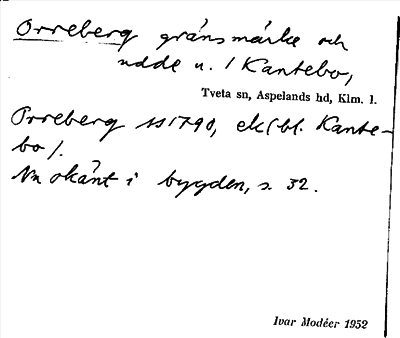 Orreberg gränsmärke och
udde u. / Kantebo,
Tveta sn, Aspelands hd, Klm. l.
Orreberg 1790, ek (bl. Kante-
bo).
Nu okänt i bygden, s. 32.
Ivar Modéer 1952